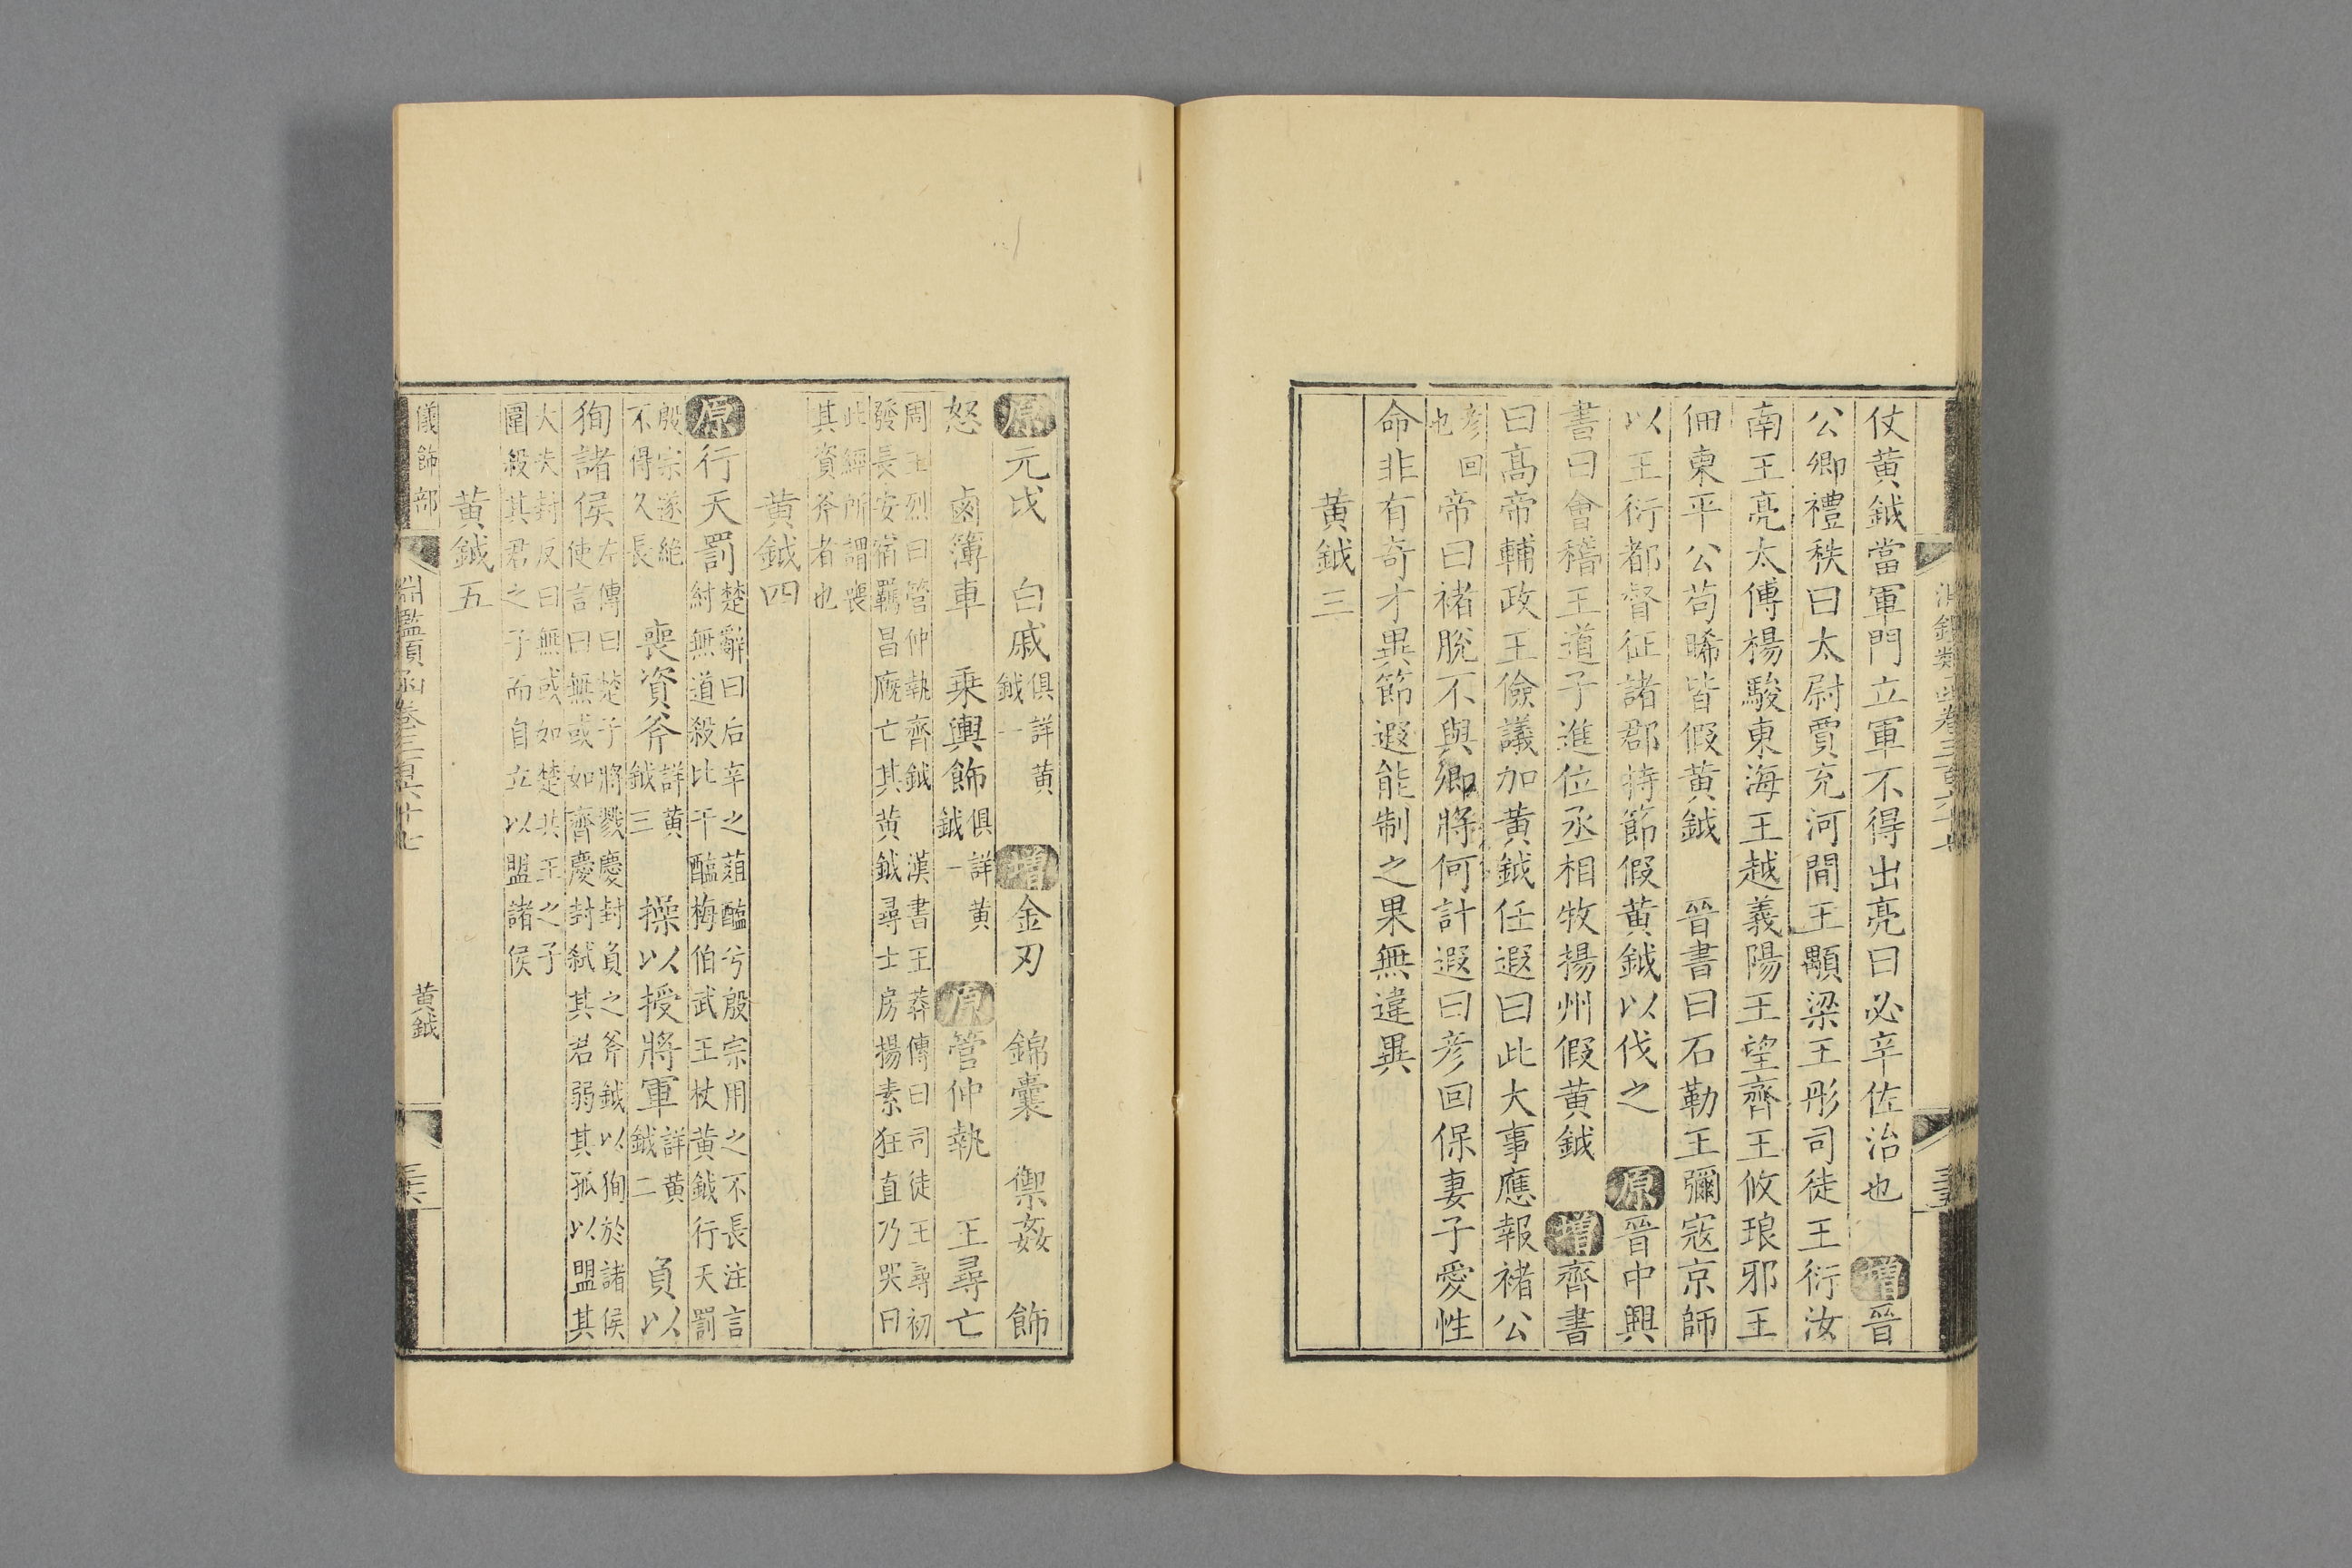 仗黄鉞當軍門立軍不得出亮曰必辛佐治也 增晉
公卿禮秩曰太尉賈充河間王顒梁王肜司徒王衍汝
南王亮太傅楊駿東海王越義陽王望齊王攸琅邪王
伷東平公苟晞皆假黄鉞 晉書曰石勒王彌寇京師
以王衍都督征諸郡持節假黄鉞以伐之 原晉中興
書曰會稽王道子進位丞相牧揚州假黄鉞 增齊書
曰高帝輔政王儉議加黄鉞任遐曰此大事應報褚公
彦回
也
帝曰褚脱不與卿將何計遐曰彦回保妻子愛性
命非有奇才異節遐能制之果無違異
黄鉞三
原元戉 白戚俱詳黄
鉞一
增金刃 錦囊 禦姦 飾
怒 鹵簿車 乘輿飾俱詳黄
鉞一
原管仲執 王尋亡
周王烈曰管仲執齊鉞 漢書王莽傳曰司徒王尋初
發長安宿覊昌廐亡其黄鉞尋士房揚素狂直乃哭曰
此經所謂喪
其資斧者也
黄鉞四
原行天罰
楚辭曰后辛之葅醢兮殷宗用之不長注言
紂無道殺比干醢梅伯武王杖黄鉞行天罰
殷宗遂絶
不得久長
喪資斧詳黄
鉞三
操以授將軍詳黄
鉞二
負以
狥諸侯
左傳曰楚子將戮慶封負之斧鉞以狥於諸侯
使言曰無或如齊慶封弑其君弱其孤以盟其
大夫封反曰無或如楚共王之子
圍殺其君之子而自立以盟諸侯
黄鉞五
儀飾部
淵鑑類函卷三百六十七
黄鉞